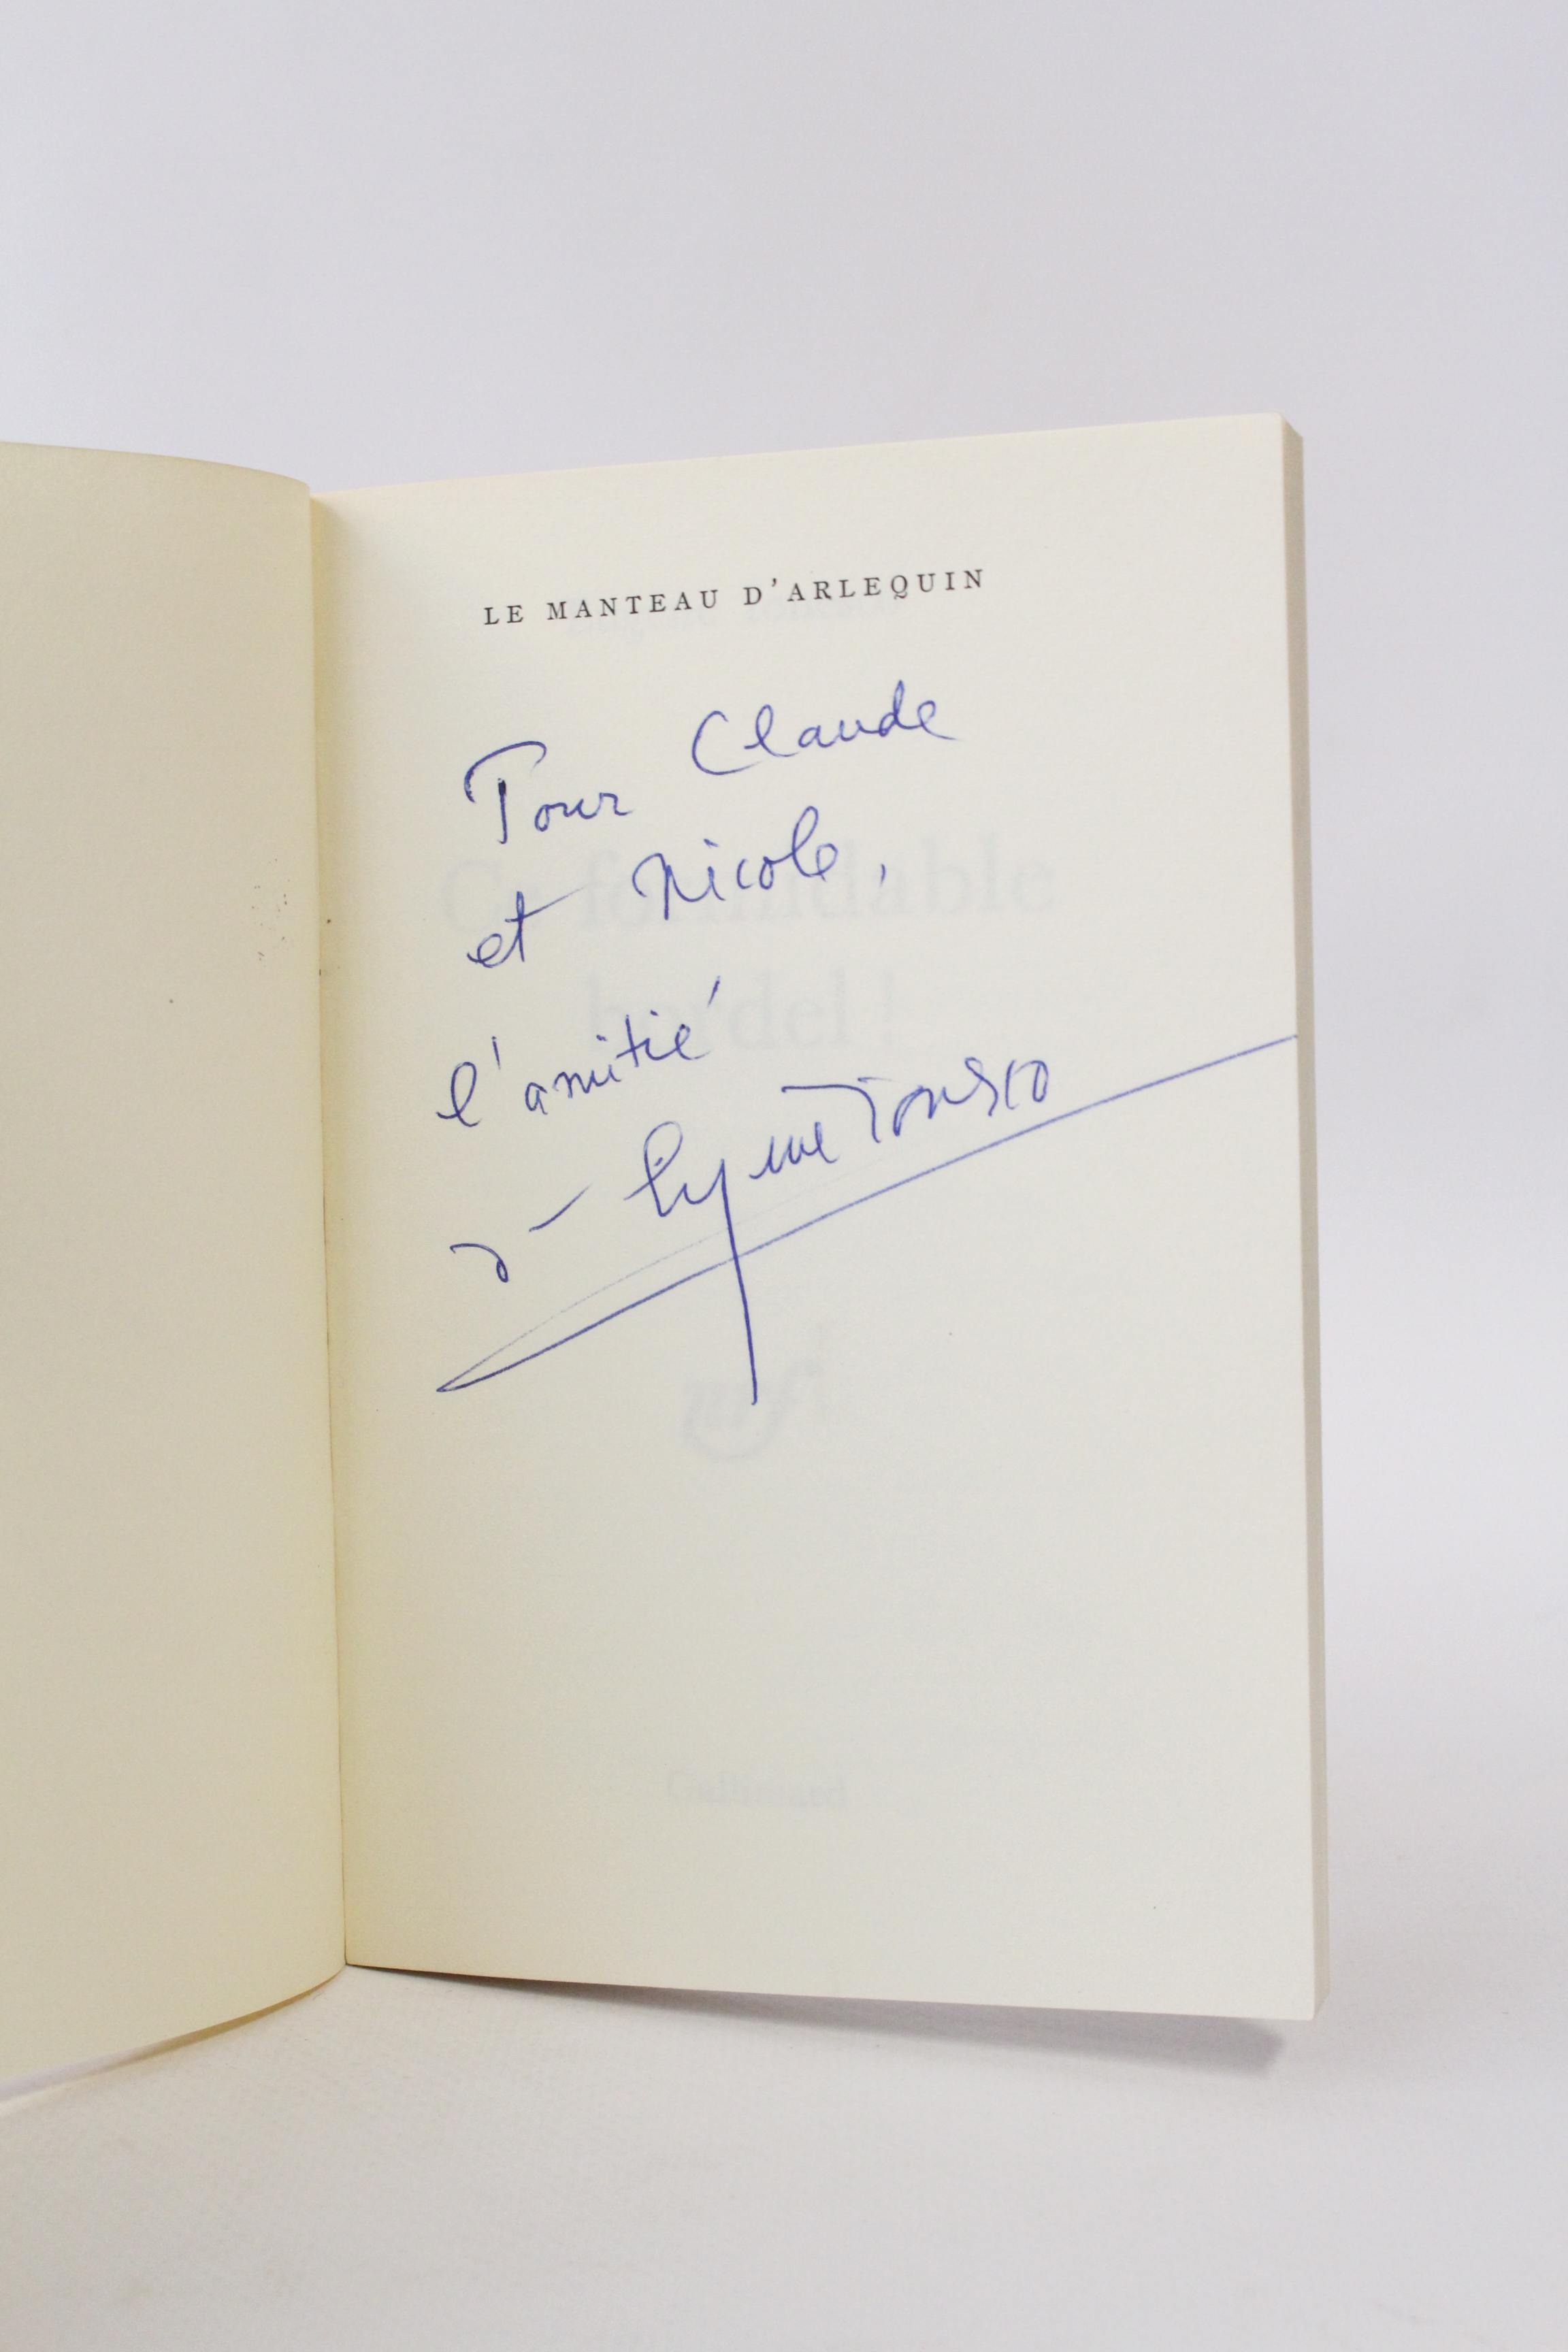 LE MANTEAU D'ARLEQUIN
Pour Claude
et Nicole,
l'amitié
d'Eugène Ionesco
Ce formidable
bordel !
nrf
Gallimard